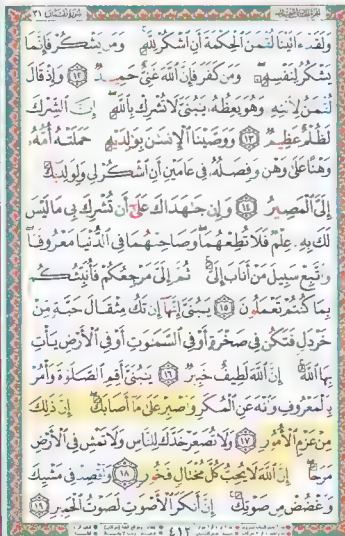 سورة لقمان ٣١
ولقد ءاتينا لقمن الحكمة أن اشكر لله ومن يشكر فإنما
يشكر لنفسه ومن كفر فإن الله غنى حميد ١٢ وإذ قال
لقمن لابنه وهو يعظه يبنى لا تشرك بالله إن الشرك
لظلم عظيم ١٣ ووصينا الإنسن بولديه حملته أمه
وهنا على وهن وفصله فى عامين أن اشكر لى ولولديك
إلى المصير ١٤ وإن جهداك على أن تشرك بى ما ليس
لك به علم فلا تطعهما وصاحبهما فى الدنيا معروفا
واتبع سبيل من أناب إلى ثم إلى مرجعكم فأنبئكم
بما كنتم تعملون ١٥ يبنى إنها إن تك مثقال حبة من
خردل فتكن فى صخرة أو فى السموت أو فى الأرض يأت
بها الله إن الله لطيف خبير ١٦ يبنى أقم الصلوة وأمر
بالمعروف وانه عن المنكر واصبر على ما أصابك إن ذلك
من عزم الأمور ١٧ ولا تصعر خدك للناس ولا تمش فى الأرض
مرحا إن الله لا يحب كل مختال فخور ١٨ واقصد فى مشيك
واغضض من صوتك إن أنكر الأصوت لصوت الحمير ١٩
٤١٢